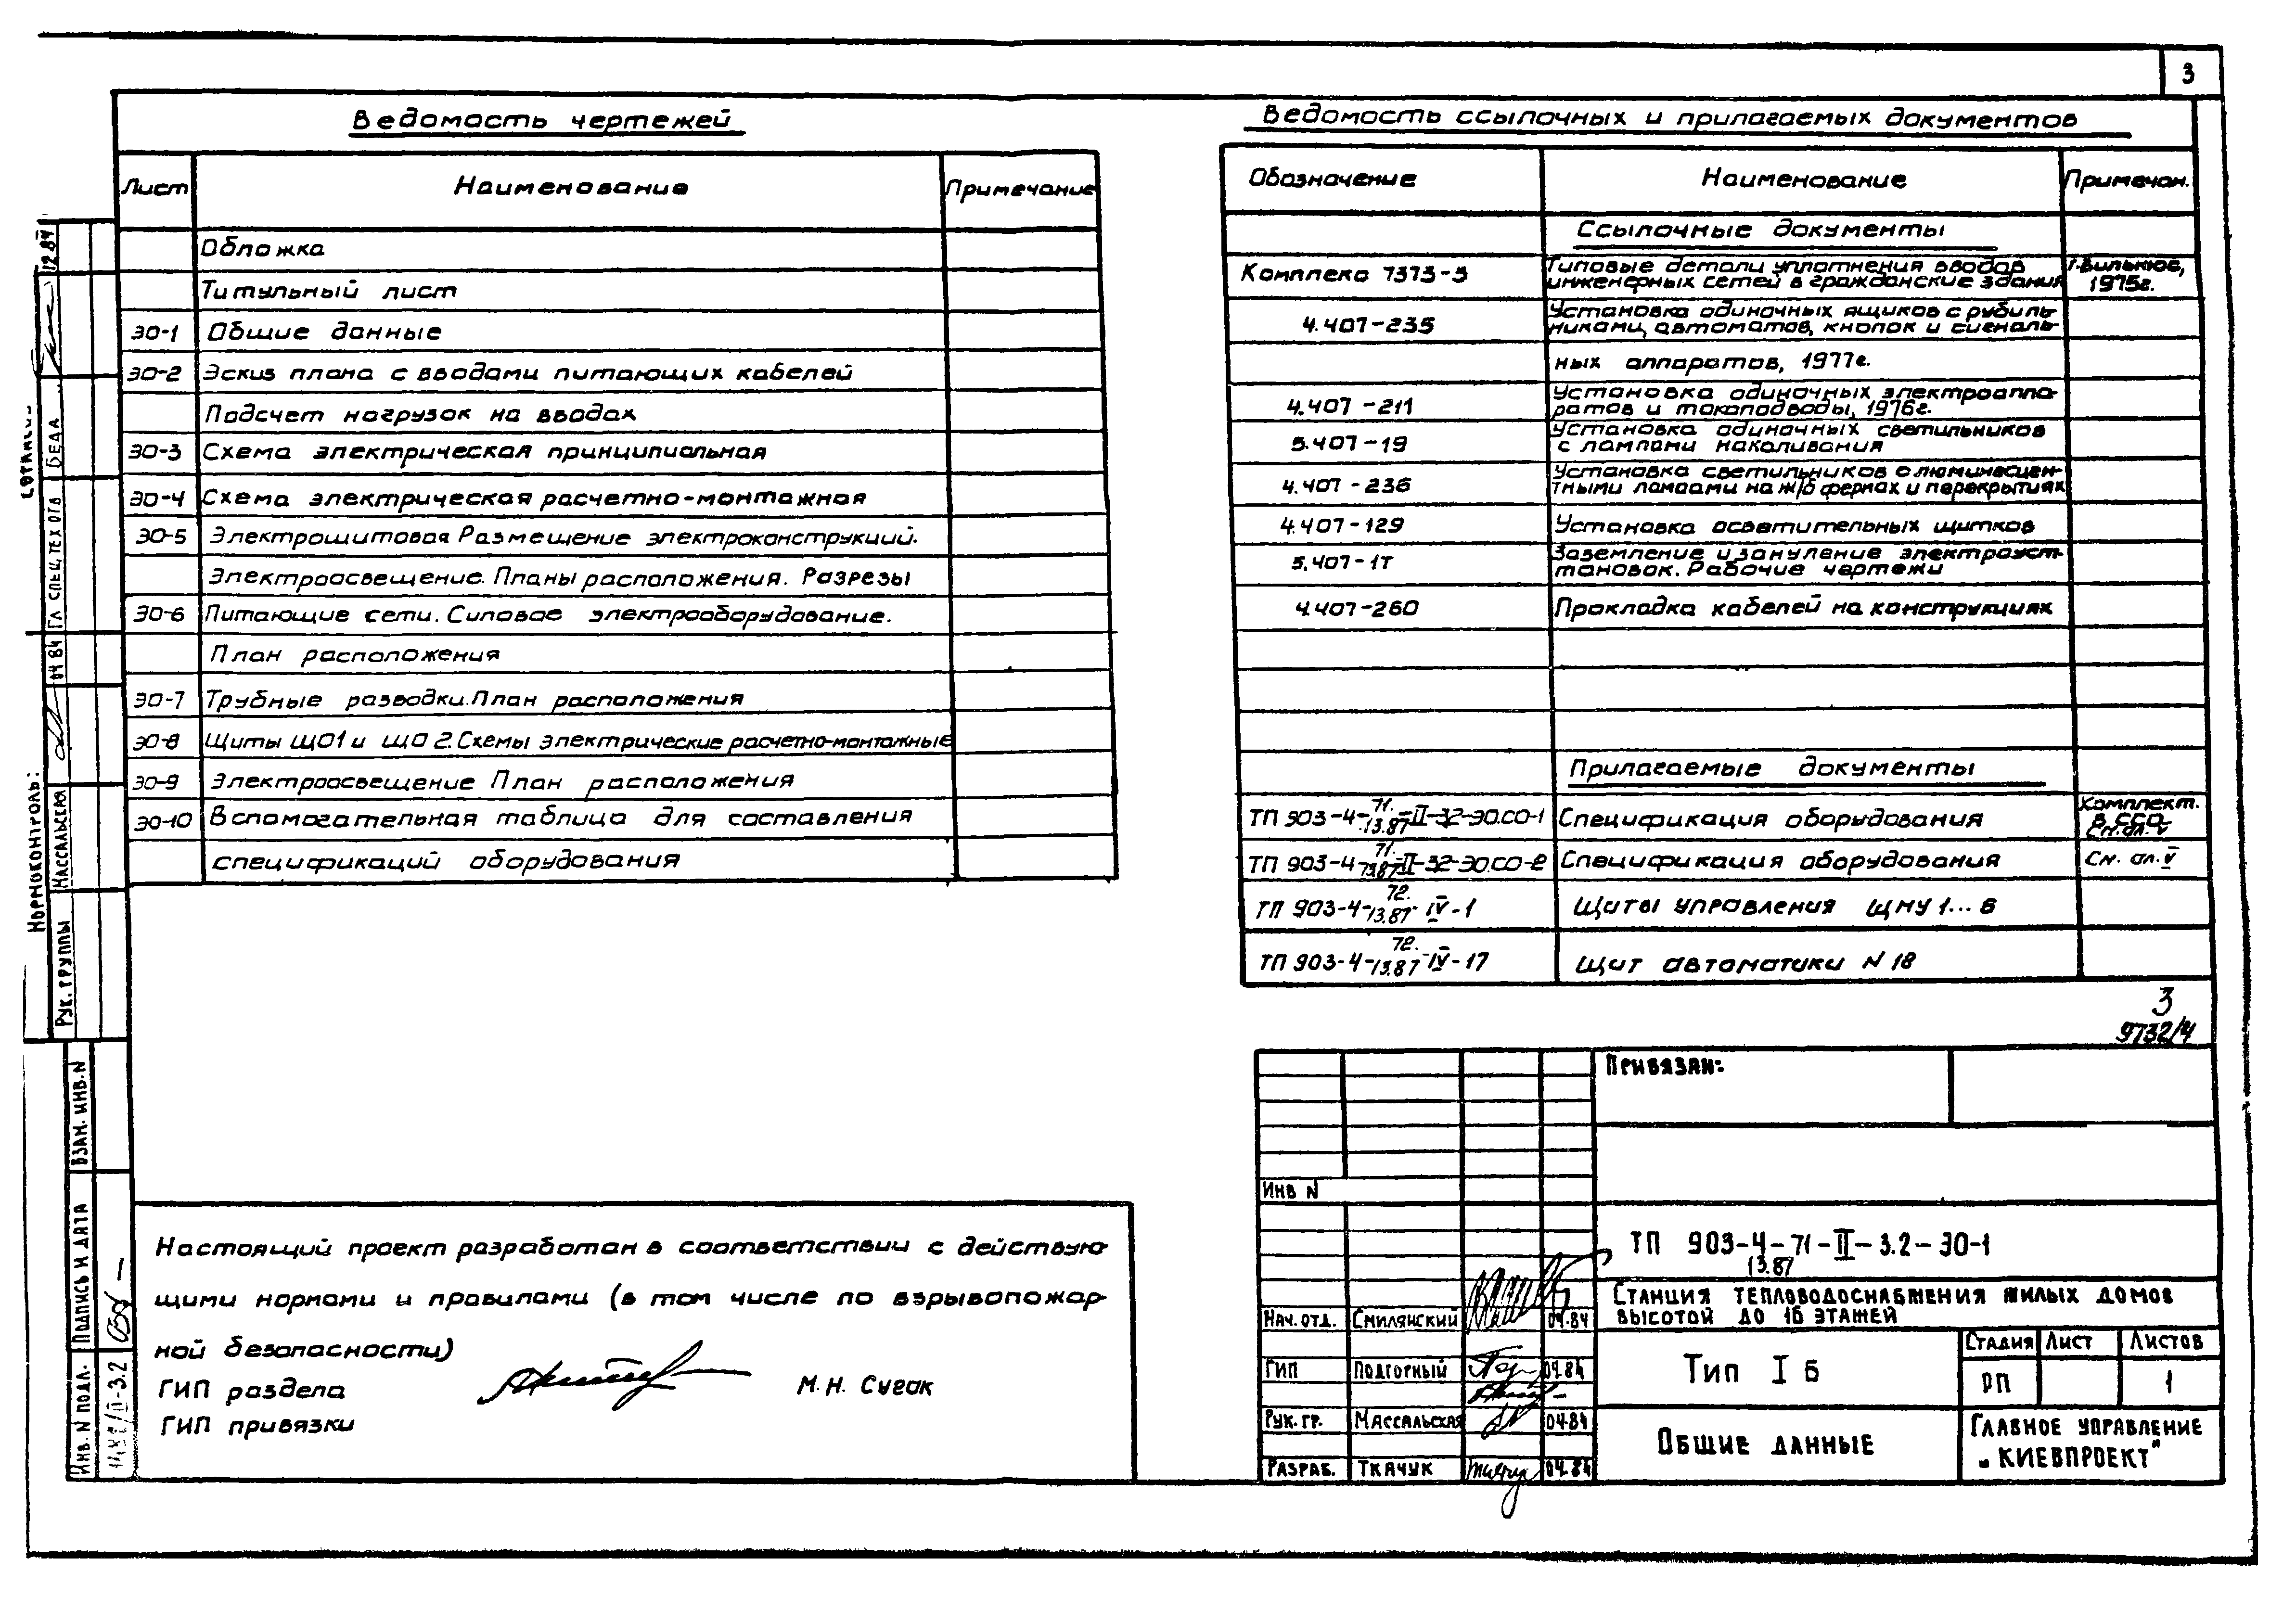 3
Ведомость чертежей
Лист Наименование Примечание
Обложка
Титульный лист
ЭО-1 Общие данные
ЭО-2 Эскиз плана с вводами питающих кабелей
Подсчет нагрузок на вводах
ЭО-3 Схема электрическая принципиальная
ЭО-4 Схема электрическая расчетно-монтажная
ЭО-5 Электрощитовая Размещение электроконструкций.
Электроосвещение. Планы расположения. Разрезы
ЭО-6 Питающие сети. Силовое электрооборудование.
План расположения
ЭО-7 Трубные разводки. План расположения
ЭО-8 Щиты ЩО1 и ЩО2. Схемы электрические расчетно-монтажные
ЭО-9 Электроосвещение План расположения
ЭО-10 Вспомогательная таблица для составления
спецификаций оборудования
Ведомость ссылочных и прилагаемых документов
Обозначение Наименование Примечан.
Ссылочные документы
Комплекс 7373-3 Типовые детали уплотнения вводов г.Вильнюс,
инженерных сетей в гражданские здания 1975г.
4.407-235 Установка одиночных ящиков с рубиль-
никами, автоматов, кнопок и сигналь-
ных аппаратов, 1977г.
4.407-211 Установка одиночных электроаппа-
ратов и токоподводы, 1976г.
5.407-19 Установка одиночных светильников
с лампами накаливания
4.407-236 Установка светильников с люминесцен-
тными лампами на ж/б фермах и перекрытиях
4.407-129 Установка осветительных щитков
5.407-1т Заземление и зануление электроуст-
тановок. Рабочие чертежи
4.407-260 Прокладка кабелей на конструкциях
Прилагаемые документы
ТП 903-4-71.13.87-II-32-ЭО.СО-1 Спецификация оборудования Комплект.
В ССО
См. ал. V
ТП 903-4-71.13.87-II-32-ЭО.СО-2 Спецификация оборудования См. ал. V
ТП 903-4-72.13.87-IV-1 Щиты управления ЩНУ 1...6
ТП 903-4-72.13.87-IV-17 Щит автоматики N 18
3
9732/4
Настоящий проект разработан в соответствии с действую-
щими нормами и правилами (в том числе по взрывопожар-
ной безопасности)
ГИП раздела М.Н. Сугак
ГИП привязки
Привязан:
Инв N
ТП 903-4-71-II-3.2-ЭО-1
13.87
Станция тепловодоснабжения жилых домов
высотой до 16 этажей
Нач. отд. Смилянский 04.84
ГИП Подгорный 04.84
Рук. гр. Массальская 04.84
Разраб. Ткачук 04.84
Тип I б
Стадия Лист Листов
РП 1
Общие данные
Главное управление
„Киевпроект"
12.84
Гл. спец. тех отд Беда
Нормоконтроль:
Рук. группы Массальская 04 84
Взам. инв. N
Подпись и дата
Инв. N подл.